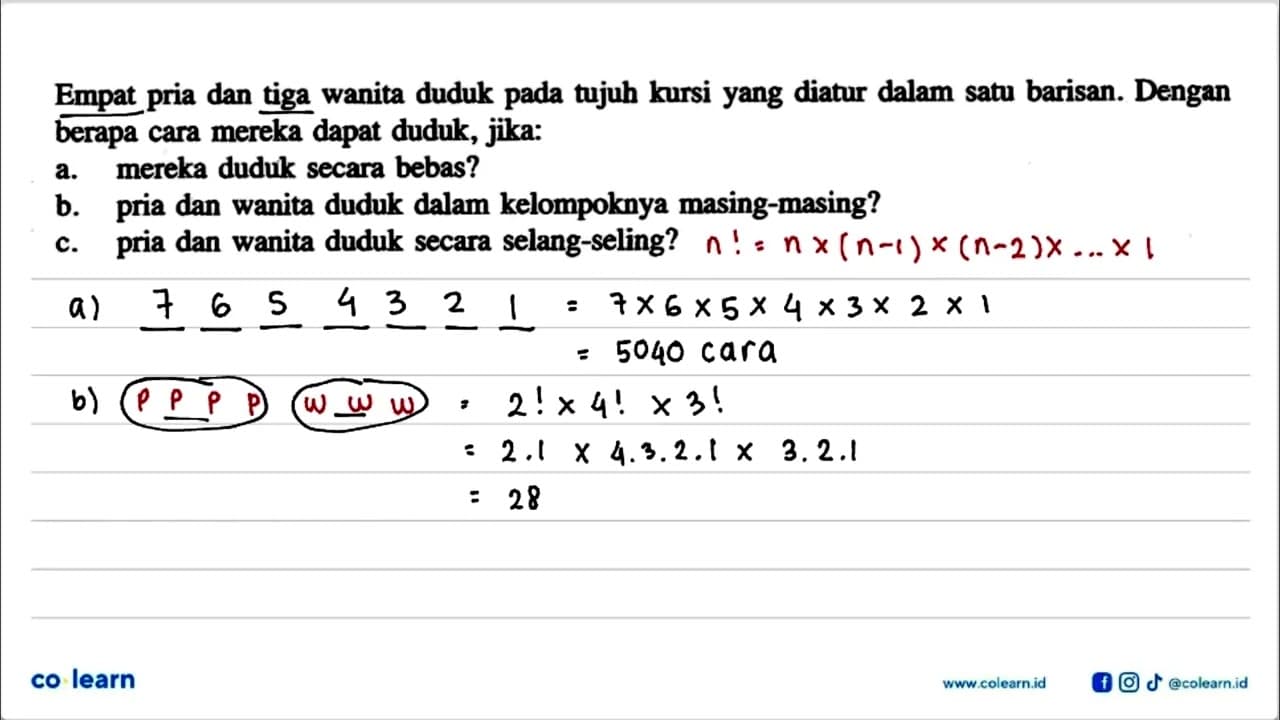 Empat pria dan tiga wanita duduk pada tujuh kursi yang diatur dalam satu barisan. Dengan
berapa cara mereka dapat duduk, jika:
a. mereka duduk secara bebas?
b. pria dan wanita duduk dalam kelompoknya masing-masing?
c. pria dan wanita duduk secara selang-seling? n! = n x (n-1) x (n-2) x ... x 1
a) 7 6 5 4 3 2 1 = 7 x 6 x 5 x 4 x 3 x 2 x 1
= 5040 cara
b) P P P P W W W = 2! x 4! x 3!
= 2.1 x 4.3.2.1 x 3.2.1
= 28
co learn
www.colearn.id @colearn.id